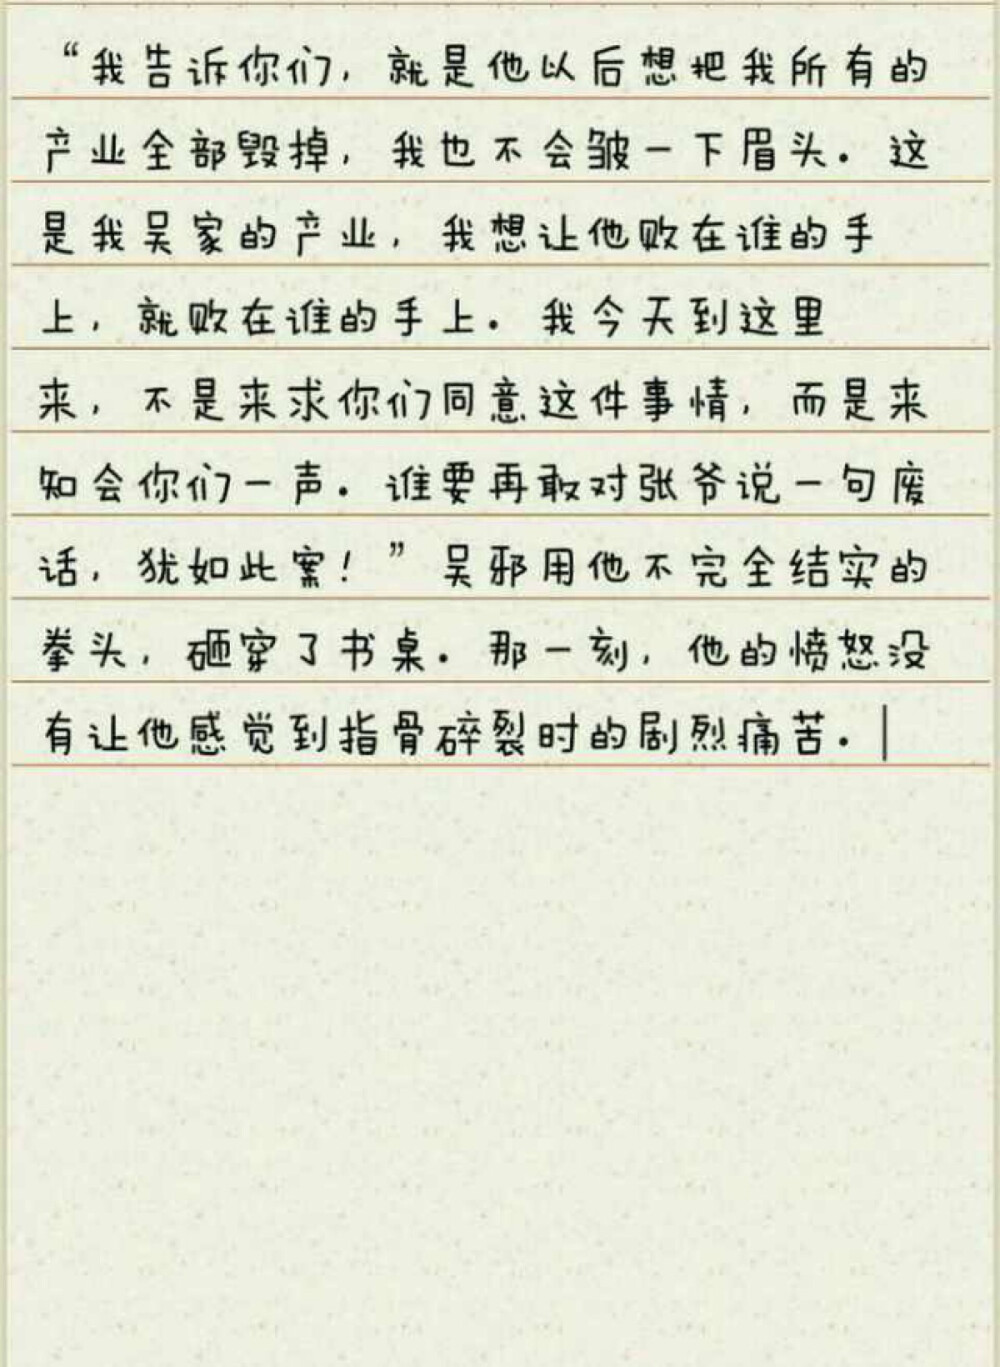 “我告诉你们，就是他以后想把我所有的
产业全部毁掉，我也不会皱一下眉头。这
是我吴家的产业，我想让他败在谁的手
上，就败在谁的手上。我今天到这里
来，不是来求你们同意这件事情，而是来
知会你们一声。谁要再敢对张爷说一句废
话，犹如此案！”吴邪用他不完全结实的
拳头，砸穿了书桌。那一刻，他的愤怒没
有让他感觉到指骨碎裂时的剧烈痛苦。